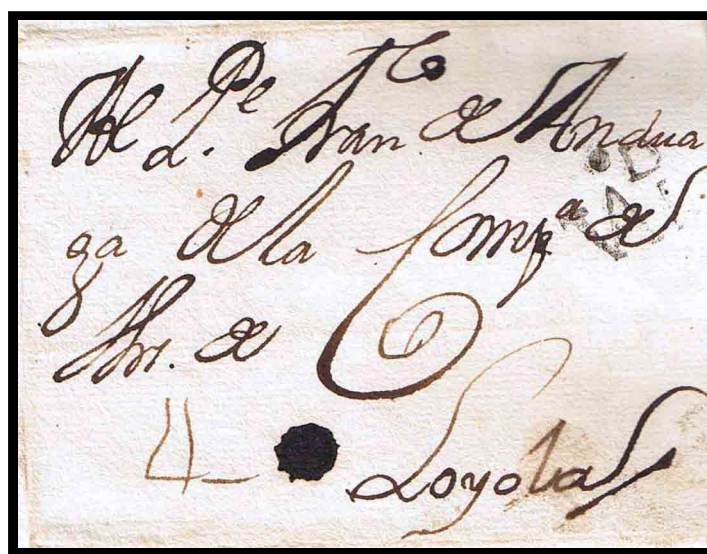 Al P.e Fran.co de Andua
ga de la Comp.a de
Jhs. de
4 Loyola